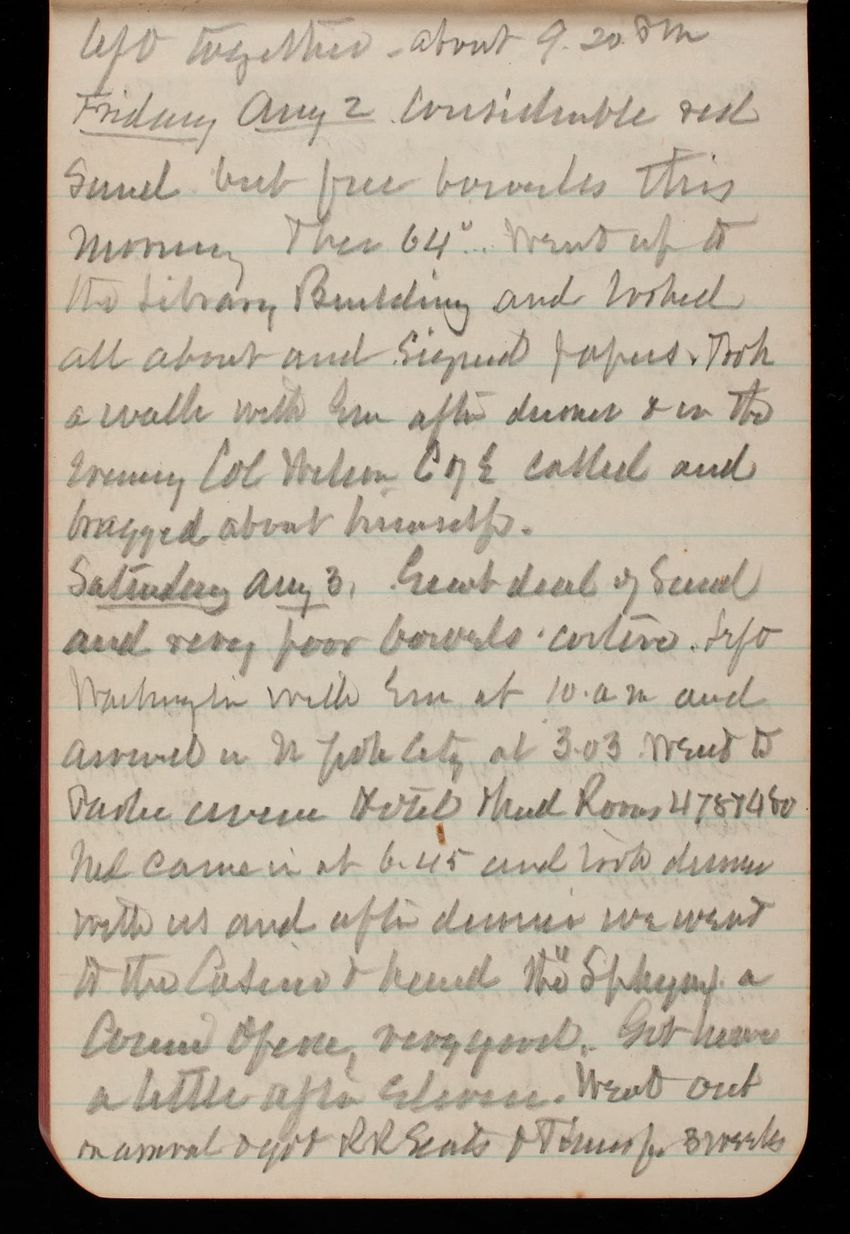 left together - about 9.20 PM
Friday Aug 2 Considerable red
Sand but free bowels this
morning Ther 64°. Went up to
the Library Building and looked
all about and Signed papers. Took
a walk with Em after dinner & in the
evening Col Wilson C of E called and
bragged about himself.
Saturday Aug 3. Great deal of Sand
and very poor bowels. costive. Left
Washington with Em at 10. a m and
arrived in N York City at 3.03 Went to
Park avenue Hotel & had Rooms 478 & 480
Ned came in at 6.45 and took dinner
with us and after dinner we went
to the Casino & heard the "Sphynx" a
Comic Opera, very good. Got home
a little after Eleven. Went out
on arrival & got RR Seats & for 3 weeks